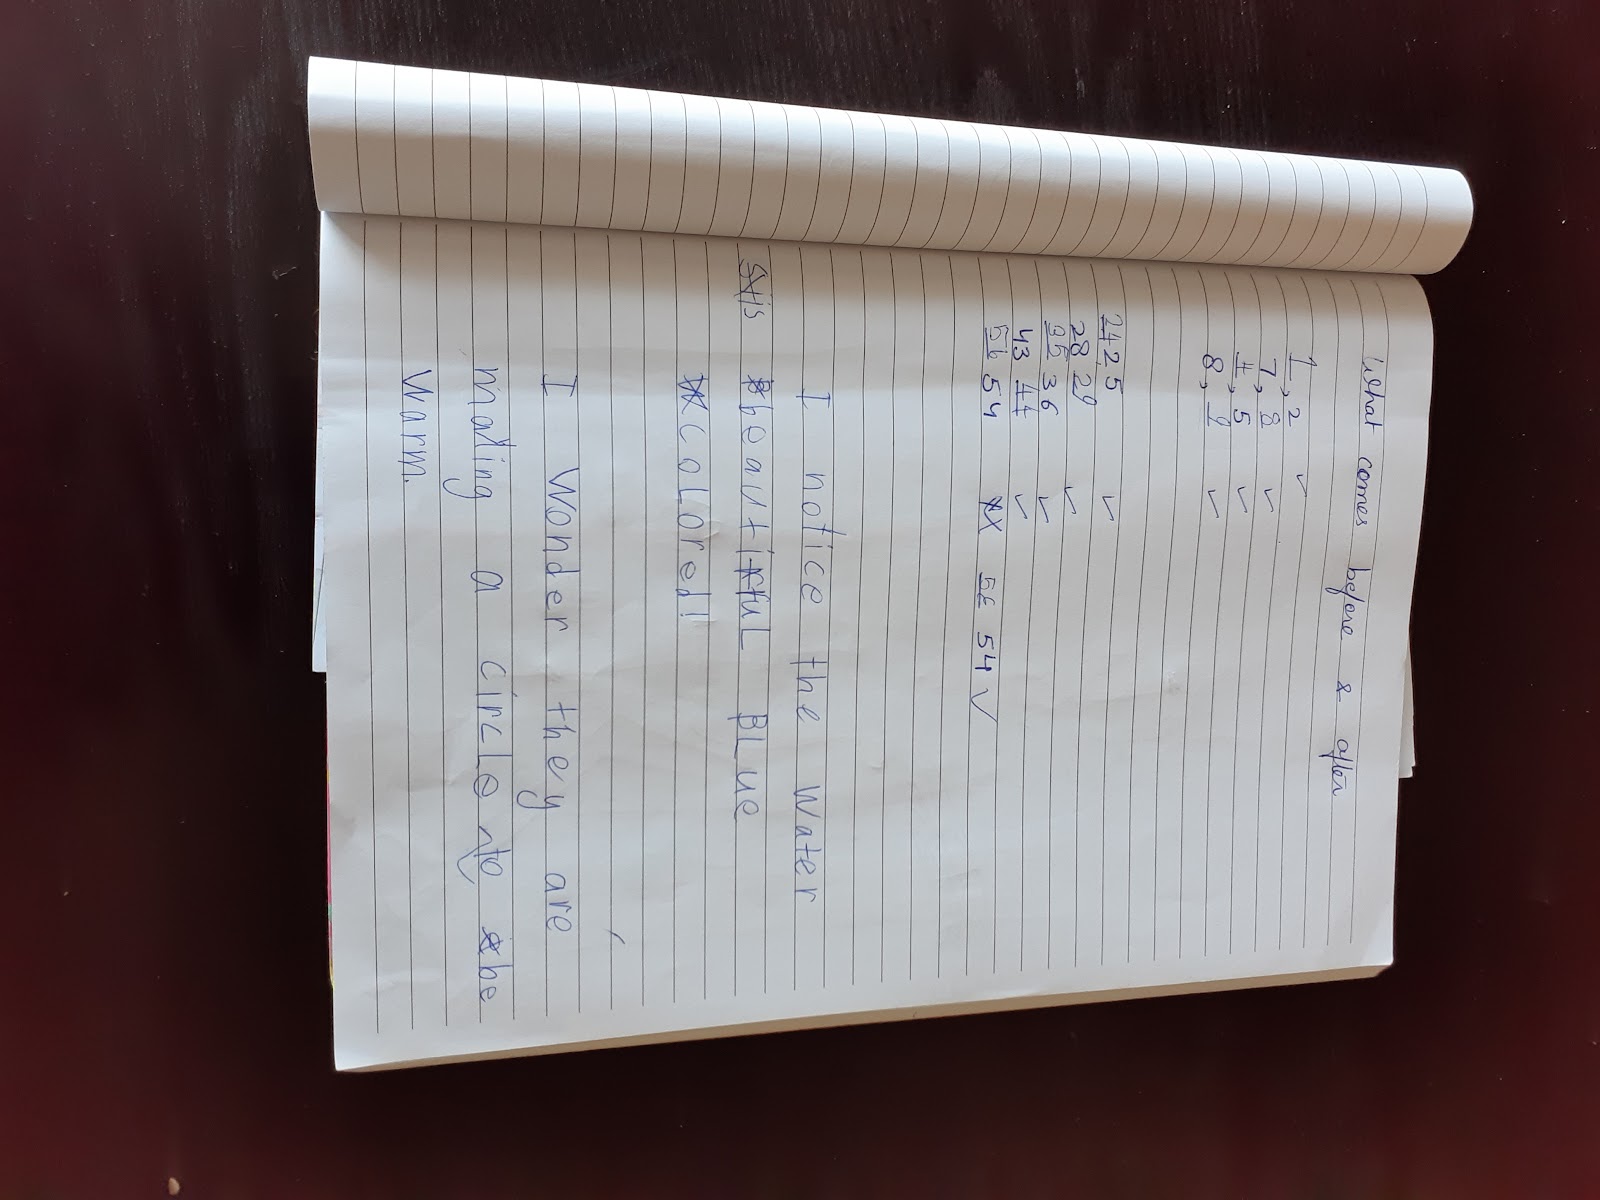 What comes before & after
1, 2 ✓
7, 8 ✓
4, 5 ✓
8, 9 ✓
24 25 ✓
28 29 ✓
35 36 ✓
43 44 ✓
54 X 54 ✓
I notice the Water
is beautifuL BLue
coLored!
I Wonder they are
making a circLe to be
Warm.